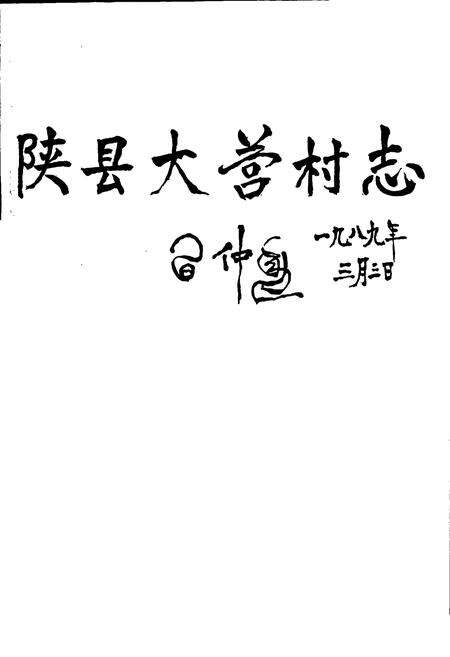 陕县大营村志
仲
一九八九年
三月三日